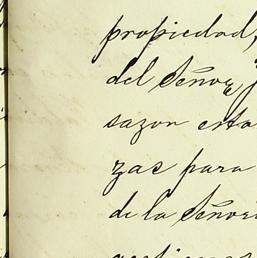 propiedad,
del Señor
sazon esta
zas para
de la Señor